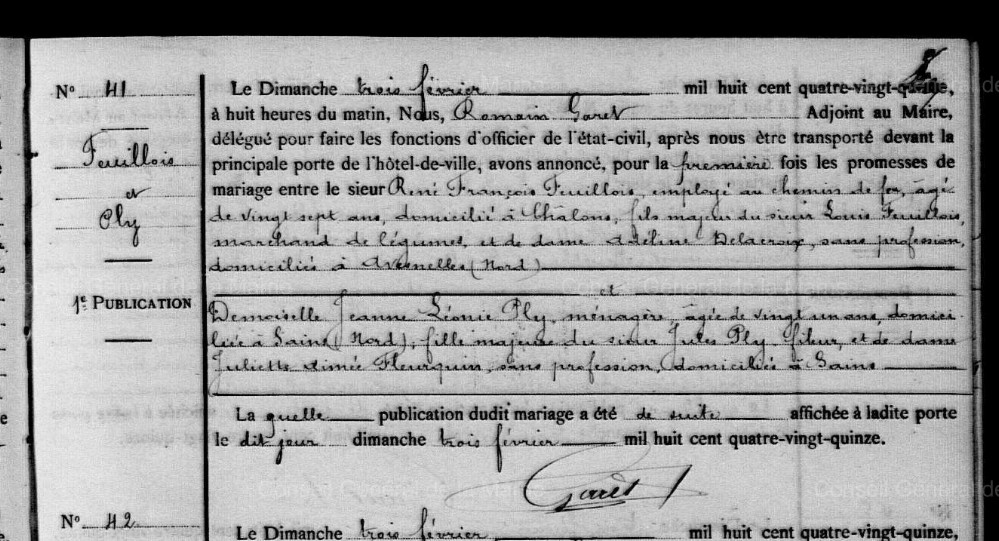 N° 41
Feuillois
et
Ply
1e PUBLICATION
Le Dimanche trois février mil huit cent quatre-vingt-quinze,
à huit heures du matin, Nous, Romain Garet Adjoint au Maire,
délégué pour faire les fonctions d'officier de l'état-civil, après nous être transporté devant la
principale porte de l'hôtel-de-ville, avons annoncé, pour la première fois les promesses de
mariage entre le sieur René François Feuillois, employé au chemin de fer, âgé
de vingt sept ans, domicilié à Châlons, fils majeur du sieur Louis Feuillois,
marchand de légumes, et de dame Adeline Delacroix, sans profession,
domiciliés à Avesnelles (Nord)
et
Demoiselle Jeanne Léonie Ply, ménagère, âgée de vingt un ans, domici
liée à Sains (Nord), fille majeure du sieur Jules Ply, fileur, et de dame
Juliette Aimée Fleurquin, sans profession, domiciliés à Sains
La quelle publication dudit mariage a été de suite affichée à ladite porte
le dit jour dimanche trois février mil huit cent quatre-vingt-quinze.
Garet
N° 42
Le Dimanche trois février mil huit cent quatre-vingt-quinze,